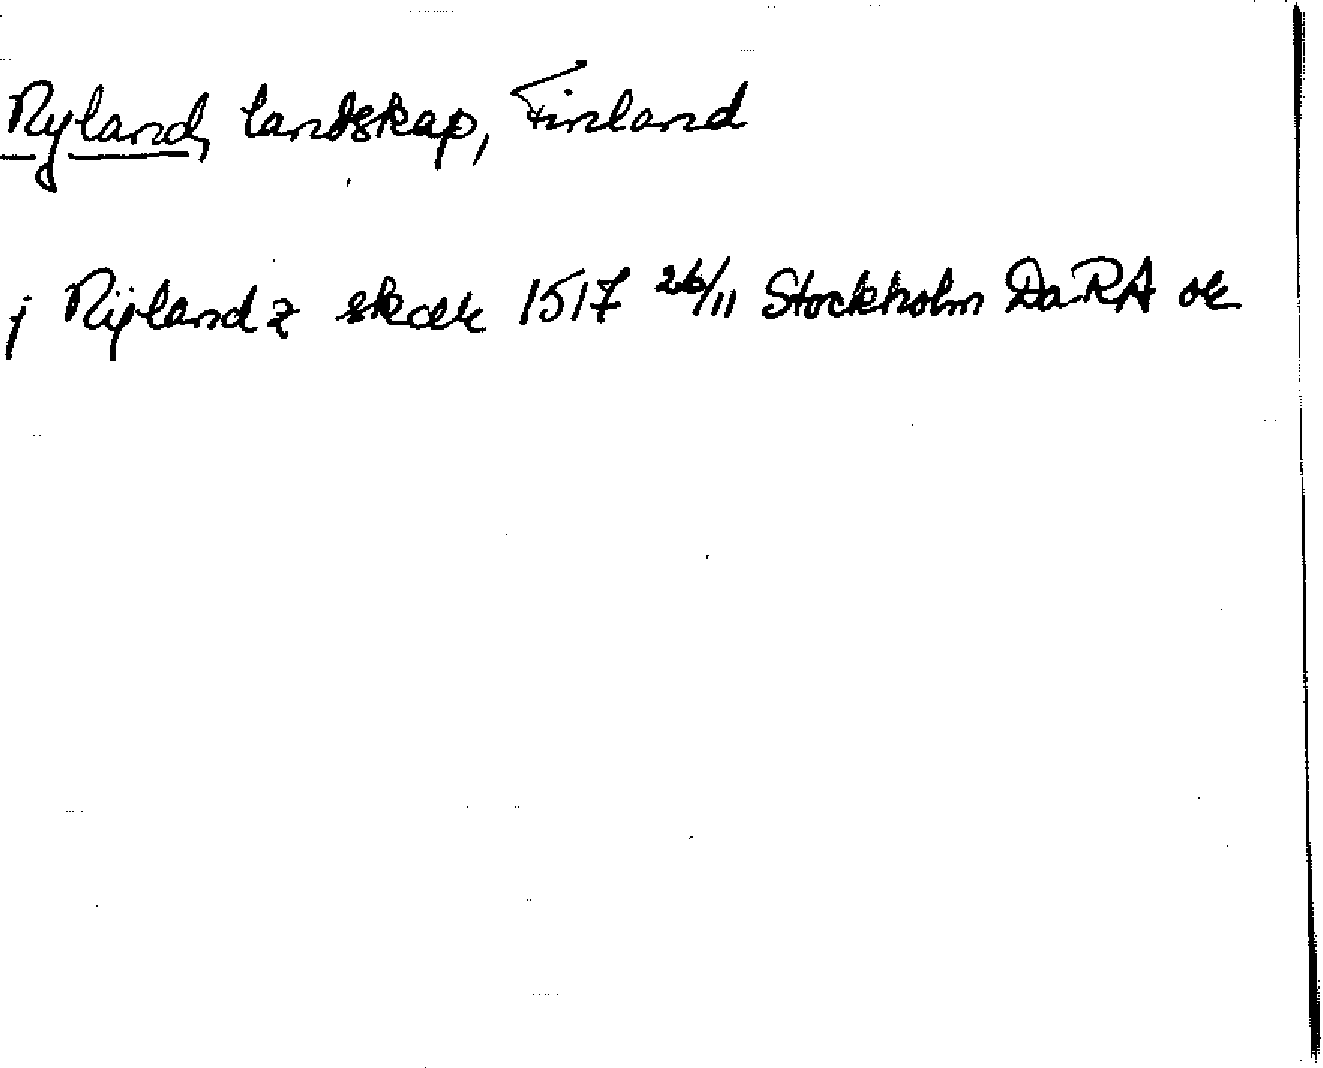 Nyland, landskap, Finland
j Nÿlandz skær 1517 26/11 Stockholm DaRA or